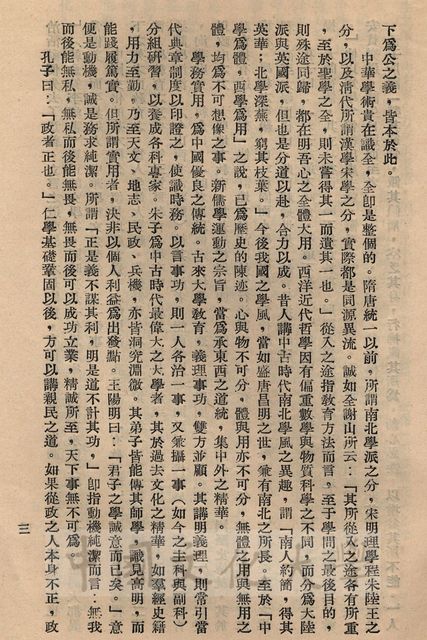 下爲公之義，皆本於此。
中華學術貴在識全，全卽是整個的。隋唐統一以前，所謂南北學派之分，宋明理學程朱陸王之
分，以及清代所謂漢學宋學之分，實際都是同源異流。誠如全謝山所云：「其所從入之途各有所重
，至於聖學之全，則未嘗得其一而遺其一也。」從入之途指教育方法而言，至于學問之最後目的，
則殊途同歸，都在明吾心之全體大用。西洋近代哲學因有偏重數學與物質科學之不同，而分爲大陸
派與英國派，但也是分道以赴，合力以成。昔人講中古時代南北學風之異趣，謂「南人約簡，得其
英華；北學深蕪，窮其枝葉。」今後我國之學風，當如盛唐昌明之世，兼有南北之所長。至於「中
學爲體，西學爲用」之說，已爲歷史的陳迹。心與物不可分，體與用亦不可分，無體之用與無用之
體，均爲不可想像之事。新儒學運動之宗旨，當爲承東西之道統，集中外之精華。
學務實用，爲中國優良之傳統。古來大學教育，義理事功，雙方並顧。其講明義理，則常引當
代典章制度以印證之，使識時務。以言事功，則一人各治一事，又兼攝一事（如今之主科與副科）
分組研習，以養成各科專家。朱子爲中古時代最偉大之大學者，其於過去文化之精華，如羣經史籍
，用力至勤，乃至天文、地志、民政、兵機，亦皆洞究淵微。其弟子皆能傳其師學，識見高明，而
能踐履篤實。但所謂實用者，決非以個人利益爲出發點。王陽明曰：「君子之學誠意而已矣。」意
便是動機，誠是務求純潔。所謂「正是義不謀其利，明是道不計其功，」卽指動機純潔而言：無我
而後能無私，無私而後能無畏，無畏而後可以成功立業，精誠所至，天下事無不可爲。
孔子曰：「政者正也。」仁學基礎鞏固以後，方可以講親民之道。如果從政之人本身不正，政
三